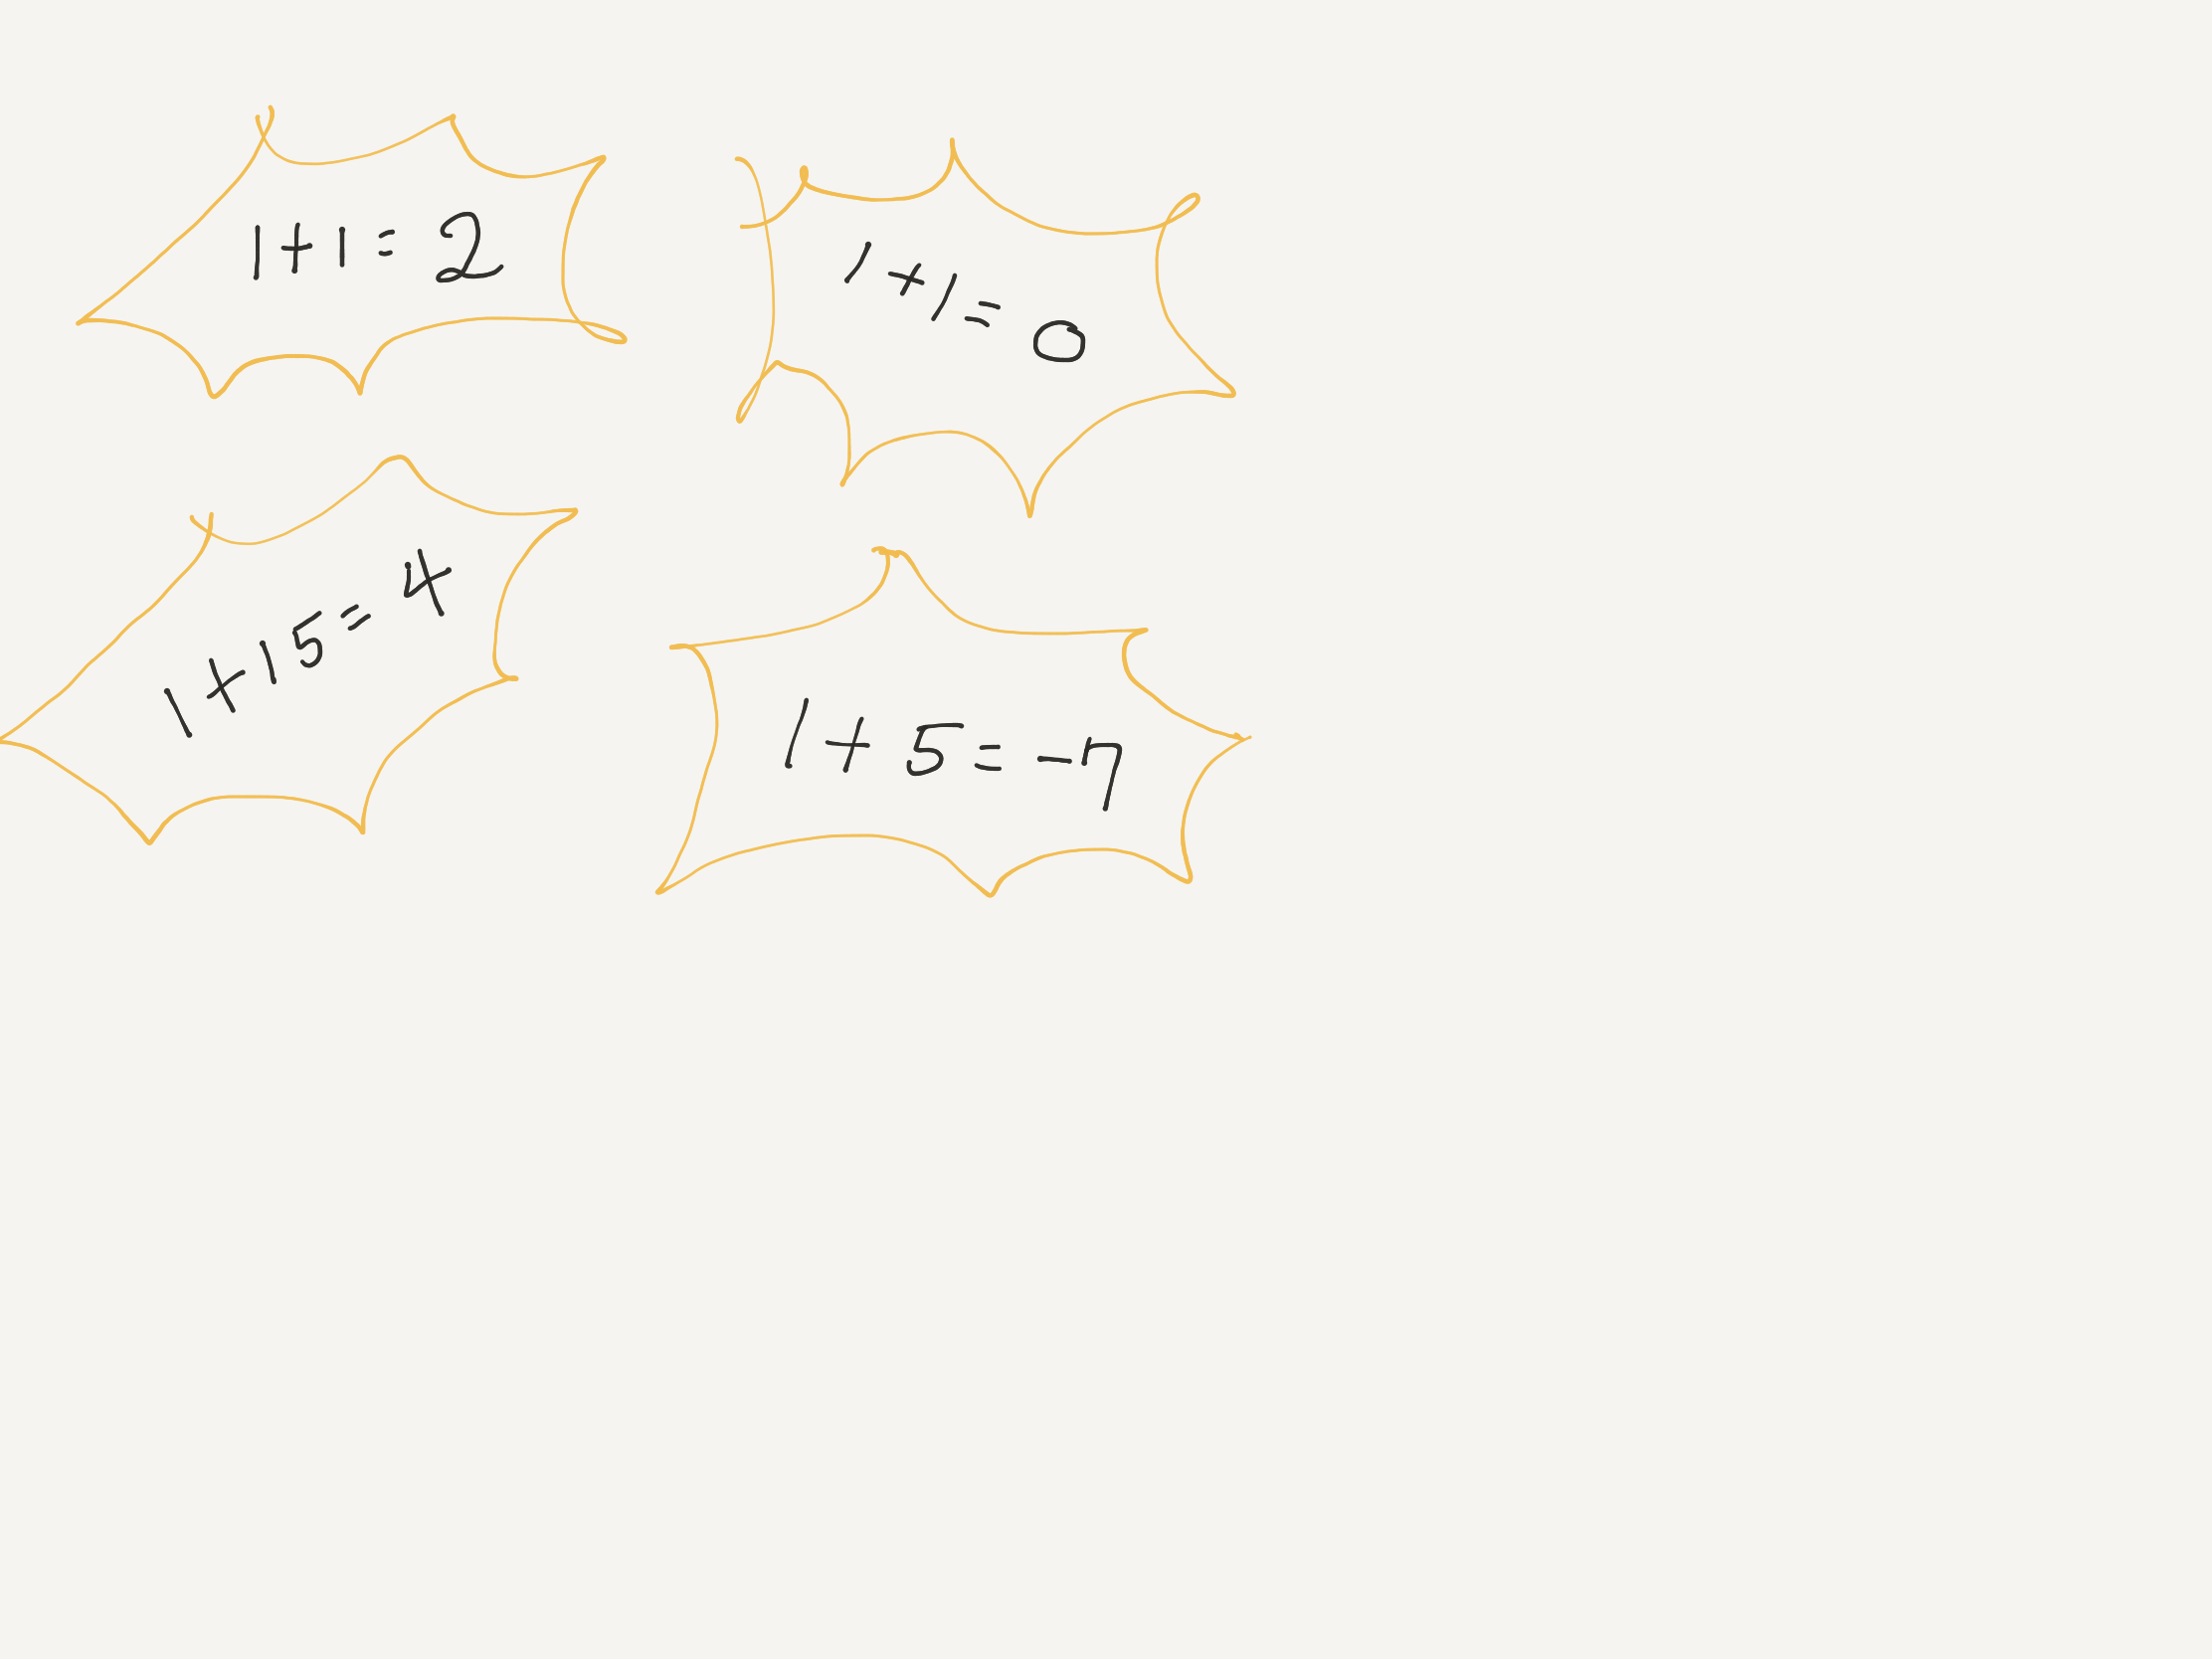 1+1=2
1+1=0
1+15=4
1+5=-7